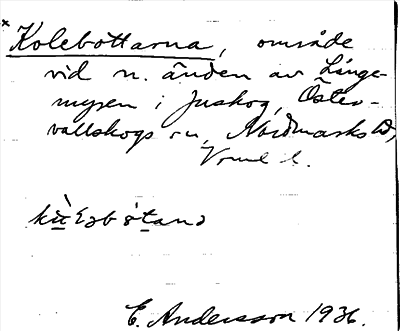 *Kolebottarna, område
vid n. änden av Långe-
mysen i Juskog, Öster-
vallskogs sn, Nordmarks hd,
Vrml l.
E. Andersson 1936.